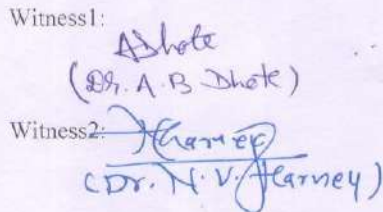 Witness1:
ADhote
(Dr. A. B Dhote)
Witness2:
Harney
(Dr. N. V. Harney)